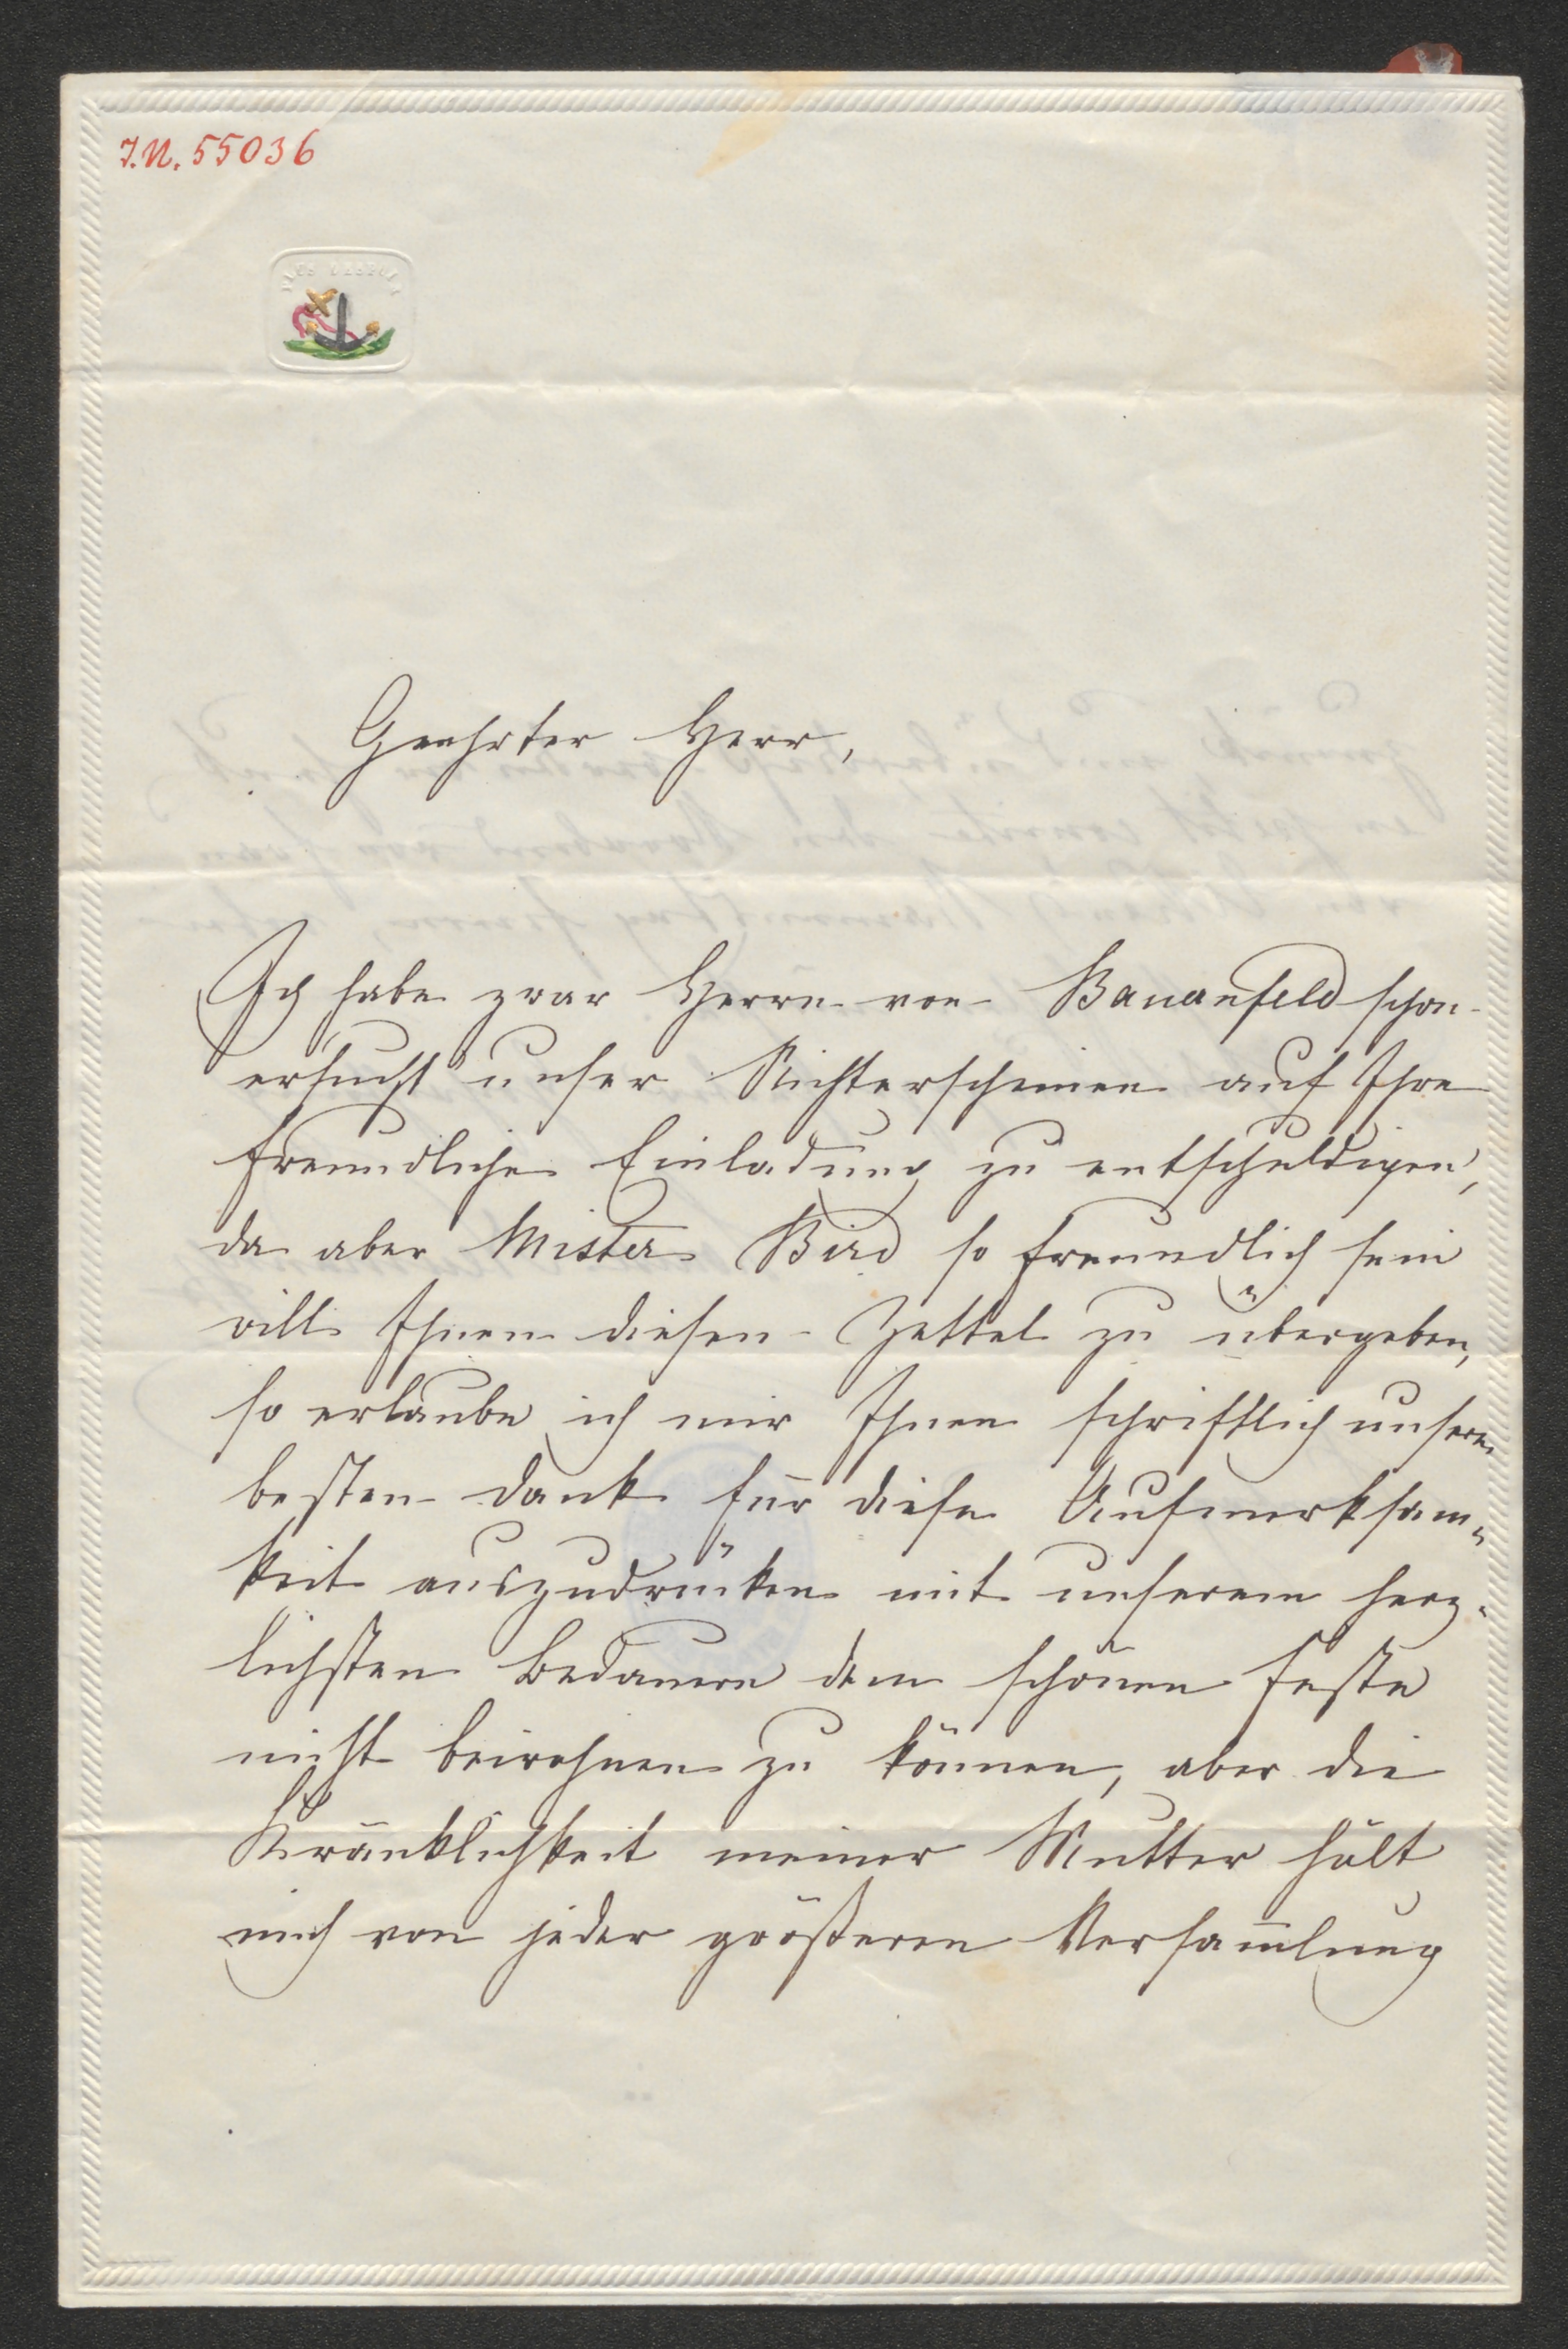 I.N. 55036
Geehrter Herr,
Ich habe zwar Herrn von Bauernfeld schon
ersucht unser Nichterscheinen auf Ihre
freundliche Einladung zu entschuldigen,
da aber Mister Bird so freundlich sein
will Ihnen diesen Zettel zu übergeben,
so erlaube ich mir Ihnen schriftlich unseren
besten Dank für diese Aufmerksam-
keit auszudrücken mit unserem herz-
lichsten Bedauern dem schönen Feste
nicht beiwohnen zu können, aber die
Kränklichkeit meiner Mutter hält
mich von jeder größeren Versam̅lung